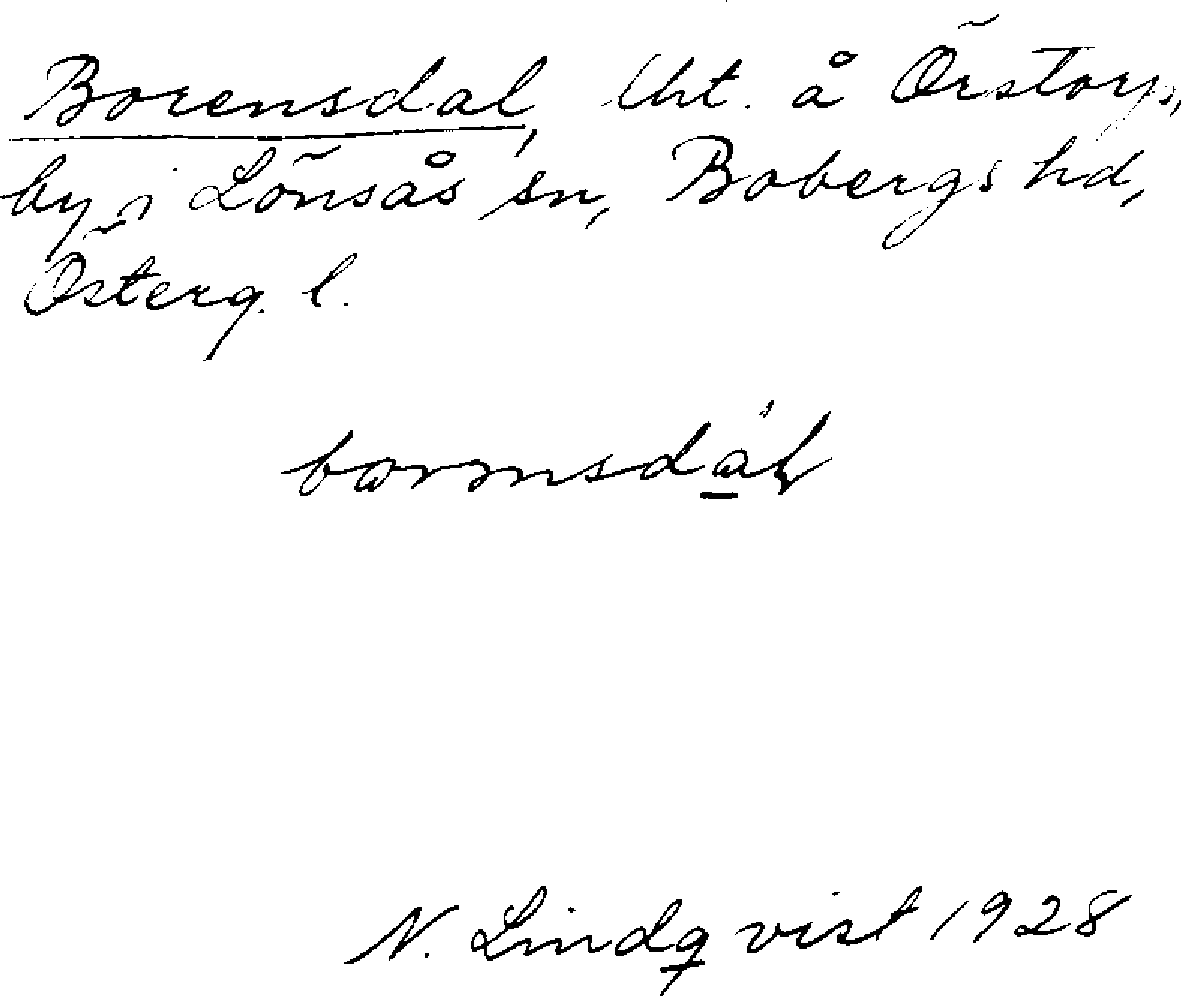 Borensdal, lht. å Örstorps
by i Lönsås sn, Bobergs hd,
Österg. l.
N. Lindqvist 1928